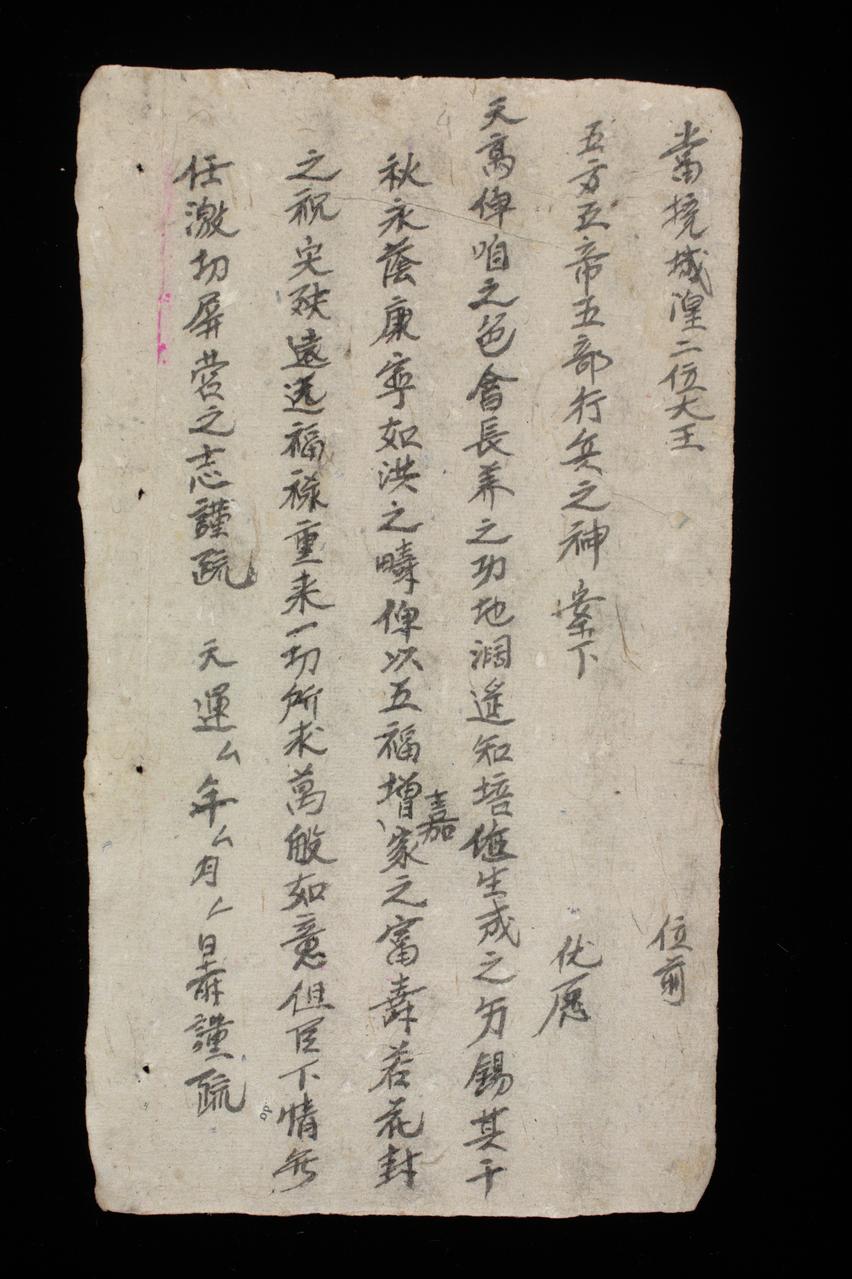 當境城湟二位大王 位前
五方五帝五部行兵之神 案下 伏愿
天高俾咱之色會長养之功地濶遥知培俻生成之力錫其千
秋永蔭康寧如洪之疇俾以五福增嘉家之富壽若花封
之祝灾殃遠送福禄重来一切所求萬般如意但臣下情無
任激切屏营之志謹疏 天運ム年ム月ム日恭謹疏